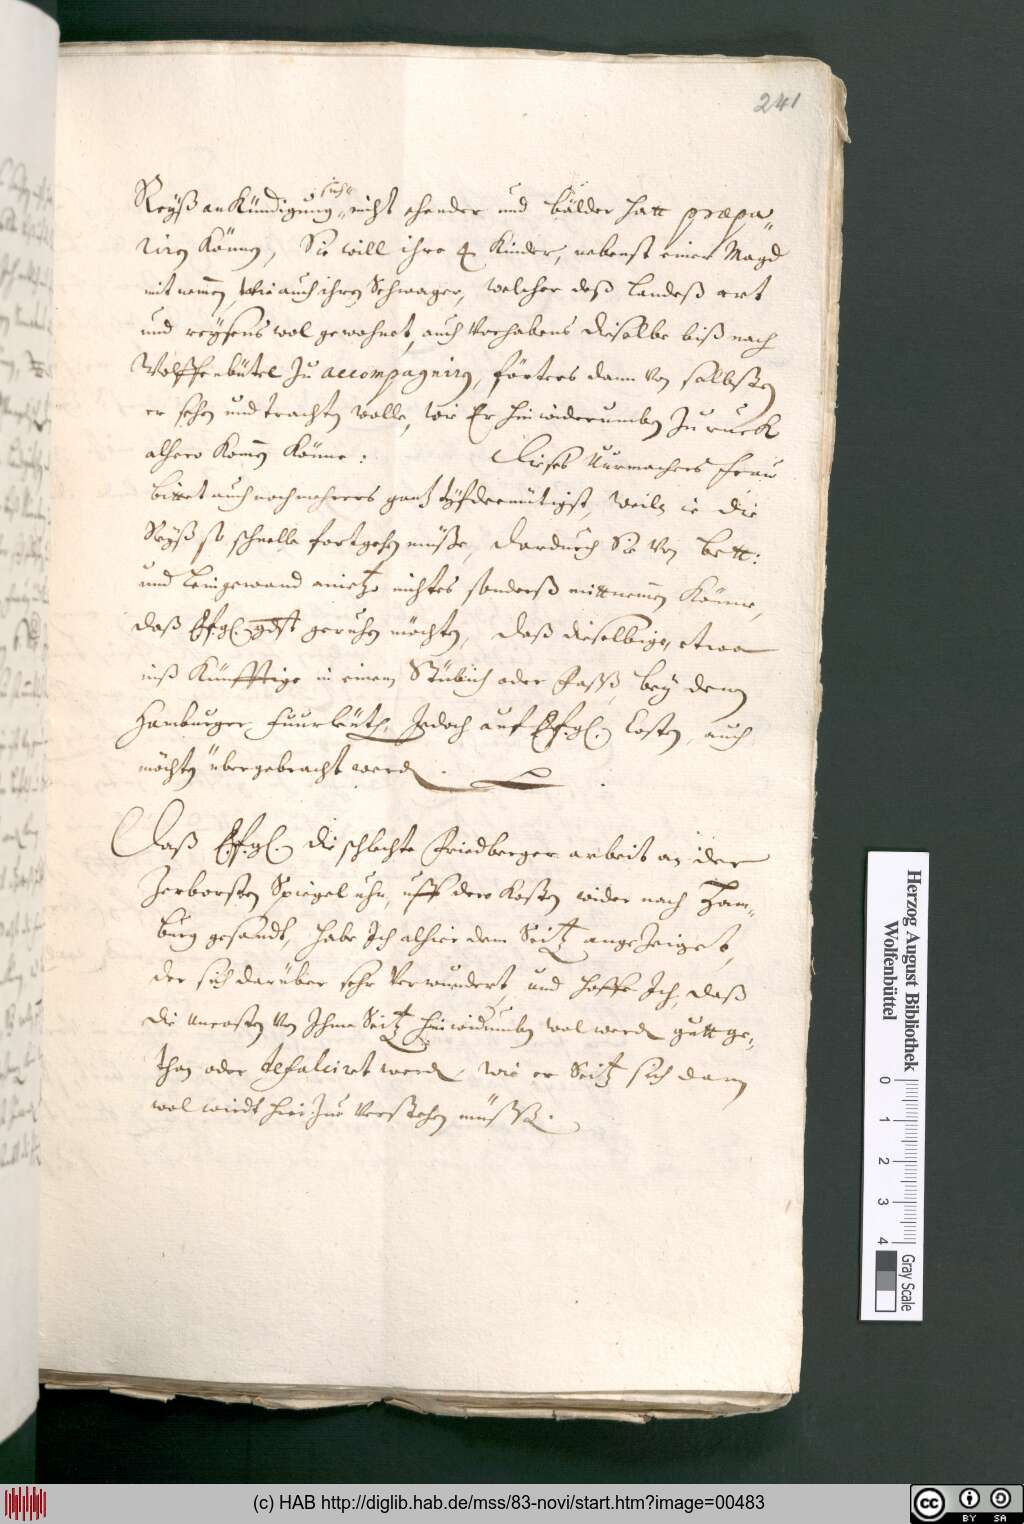 241
Reyß ankündigung sich nicht ehender und bälder hatt præpa„
riren können, Sie will ihre 4 Kinder, nebenst einer Magd
mit nemen, wie auch ihren Schwager, welcher deß Landeß art
und reysens wol gewohnet, auch Vorhabens dieselbe biß nach
Wolffenbütel zu accompagniren, förters dann von selbsten
er sehen und trachten wolle, wie Er hinwiderumben zu ruck
alhero komen könne: Dieses Uurmachers frau
bittet auch noch mehrers gantz tyfdemütigst, weiln ie die
Reyß so schnelle fortgehen müße, dardurch Sie von bett:
und Leingewand anietzo nichtes sonderß mittnemen könne,
daß Efgl. gdst geruhen möchten, daß dieselbige, etwa
inß künfftige in einem Stübich oder faßß, bey denen
Hamburger fuurleüth, Jedoch auf Efgl. Costen, auch
möchten übergebracht werden.
Daß Efgl. die schlechte Friedberger arbeit an der
Zerborsten Spiegel uhr, uff dero Kosten wider nach Ham„
burg gesandt, habe Ich alhier dem Seitz angezeiget,
der sich darüber sehr verwundert und hoffe Ich, daß
die Uncosten von Ihme Seitz hinwidumben wol werden gutt ge„
than oder defalciret werden, wie er Seitz sich dann
wol wirdt hierzue verstehen müßß.
Herzog August Bibliothek
Wolfenbüttel
0 1 2 3 4
Gray Scale
(c) HAB http://diglib.hab.de/mss/83-novi/start.htm?image=00483
CC BY SA